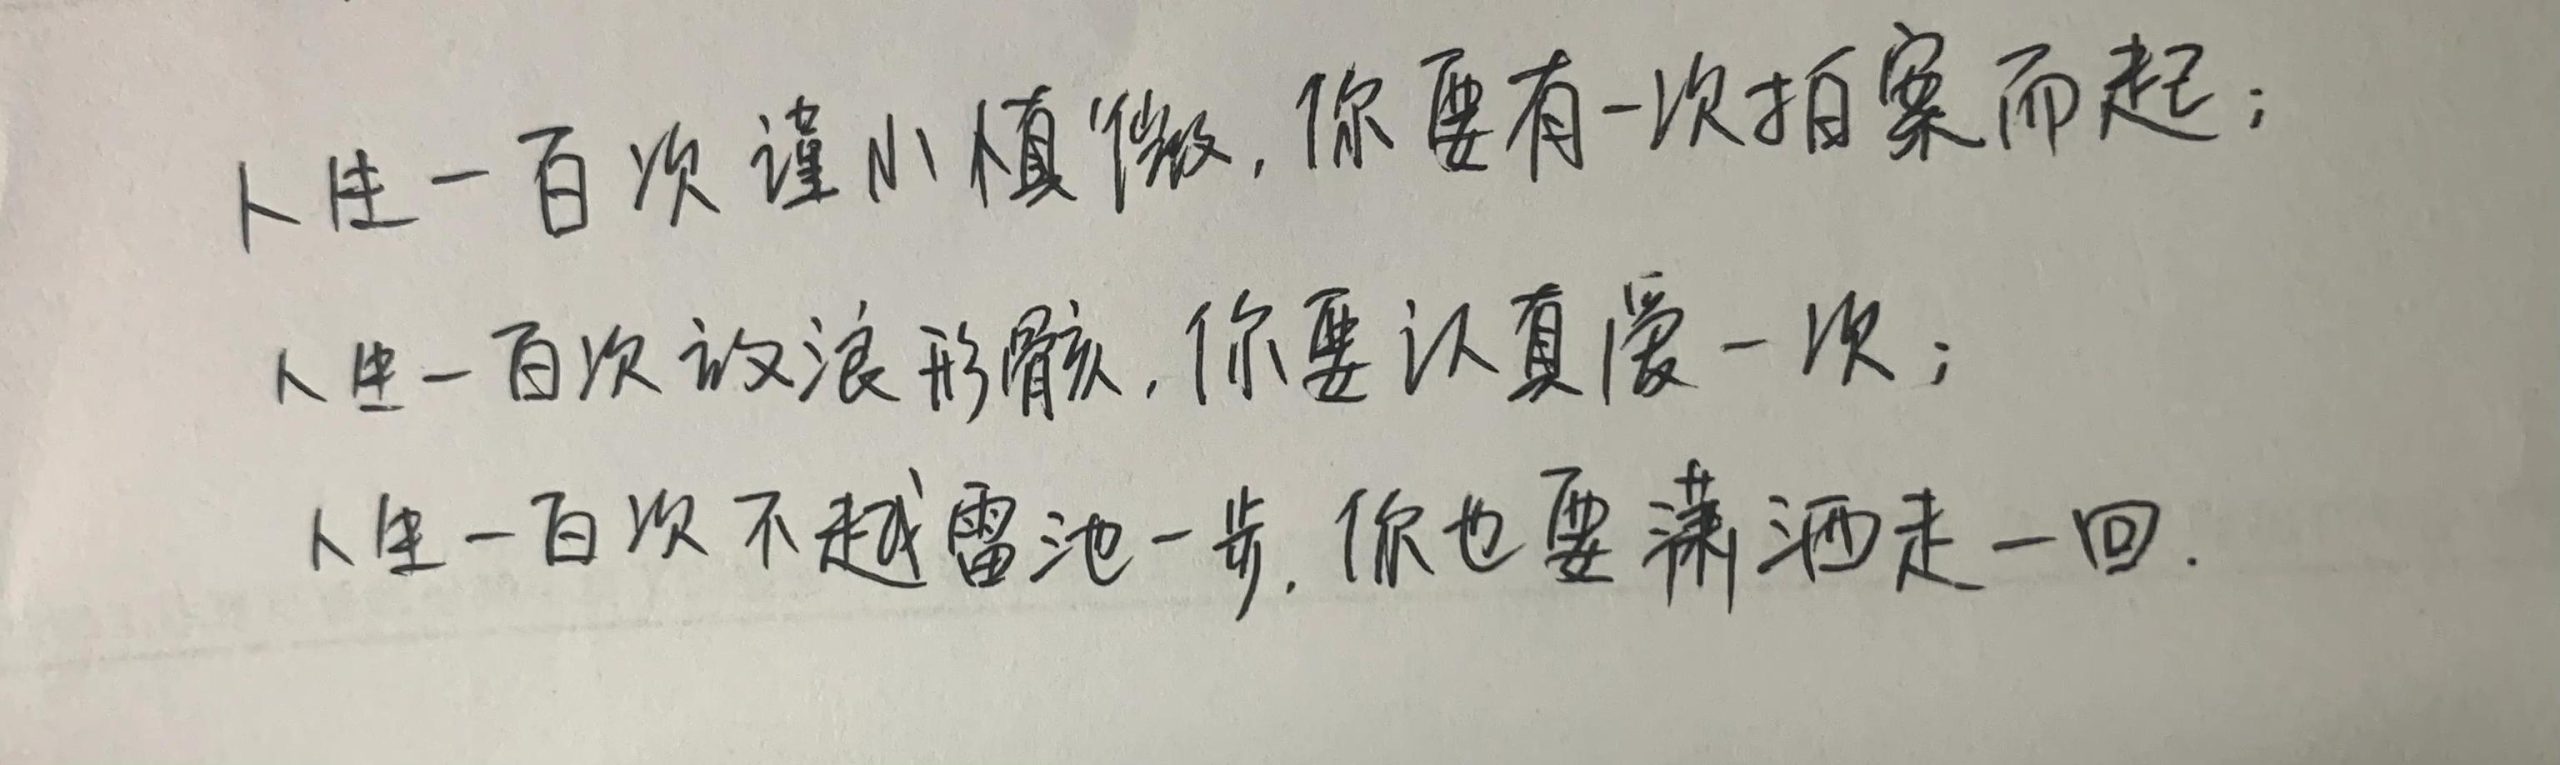 人生一百次谨小慎微,你要有一次拍案而起;
人生一百次放浪形骸,你要认真爱一次;
人生一百次不越雷池一步,你也要潇洒走一回.